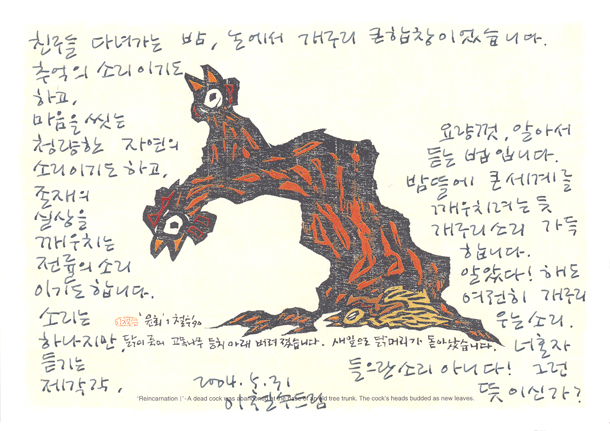 친구들 다녀가는 밤, 논에서 개구리 큰 합창이 있습니다.
추억의 소리이기도
하고,
마음을 씻는
청량한 자연의
소리이기도 하고,
존재의
실상을
깨우치는
전륜의 소리
이기도 합니다.
소리는
하나지만,
듣기는
제각각,
요량껏, 알아서
듣는 법입니다.
밤 뜰에 큰 세계를
깨우치려는 듯
개구리 소리 가득
합니다.
알았다! 해도
여전히 개구리
우는 소리.
너 혼자
들으란 소리 아니다! 그런
뜻이신가?
2004. 5. 31
이철수 드림
'윤회' 1 철수 90
닭이 죽어 고목나무 둥치 아래 버려졌습니다. 새잎으로 닭머리가 돋아났습니다.
'Reincarnation I' - A dead cock was abandoned at the base of an old tree trunk. The cock's heads budded as new leaves.